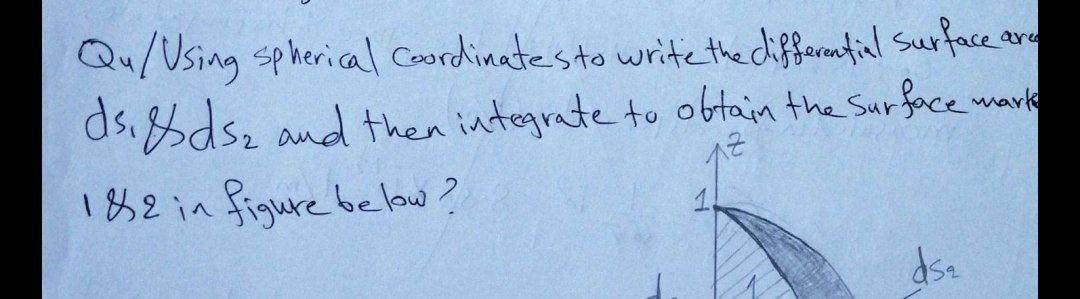 Qu/Using spherical coordinates to write the differential surface area
ds₁ & ds₂ and then integrate to obtain the surface mark
1 & 2 in figure below?
z
1
ds₂
1